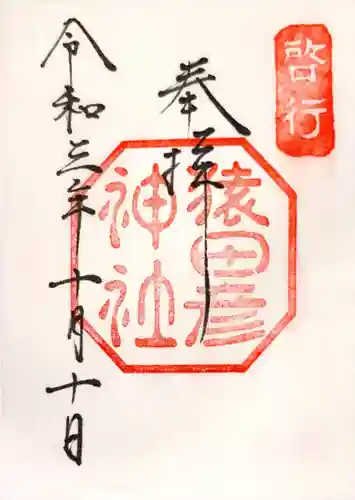 啓行
奉拝
猿田彦
神社
令和三年十月十日